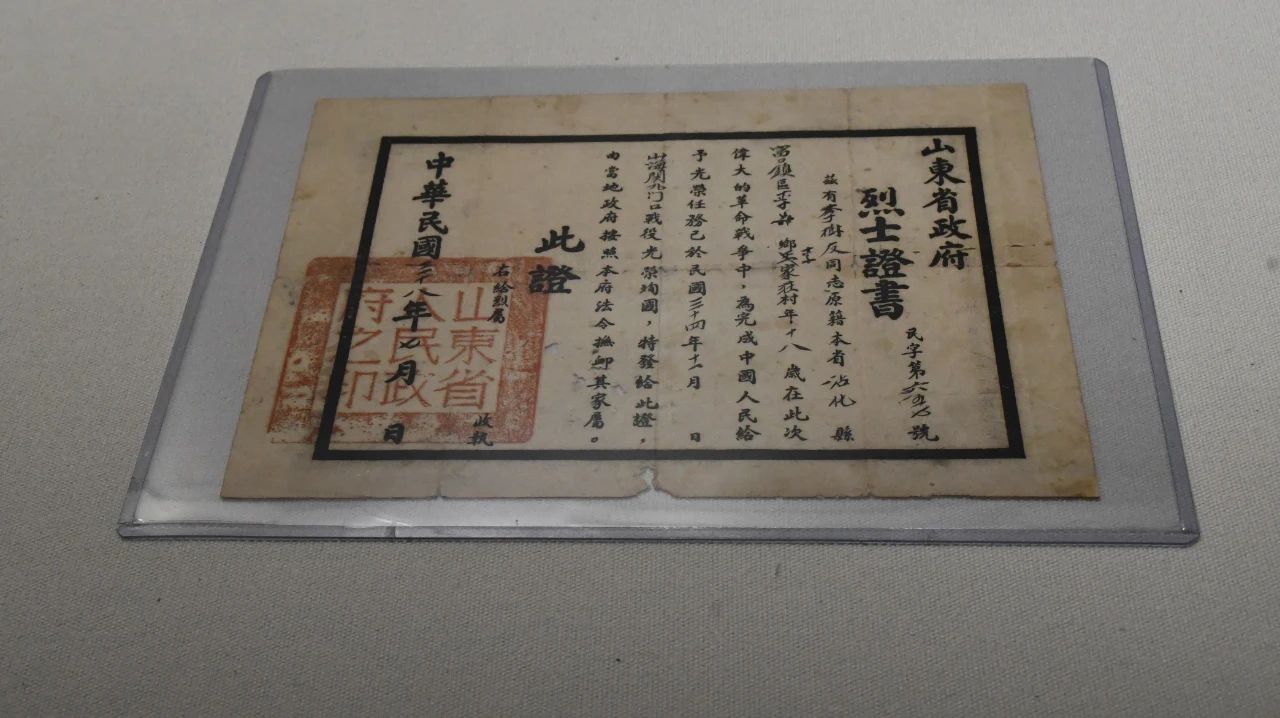 山東省政府
烈士證書
民字第六五七號
茲有李樹友同志原籍本省沾化縣
富國鎮區李 鄉吳家莊村年十八歲在此次
偉大的革命戰爭中，為完成中國人民給
予光榮任務已於民國三十四年十一月 日
山海關九门口戰役光榮殉國，特發給此證，
由當地政府按照本府法令撫卹其家屬。
此證
右給烈屬
收執
中華民國三十八年七月 日
山東省
人民政
府之印